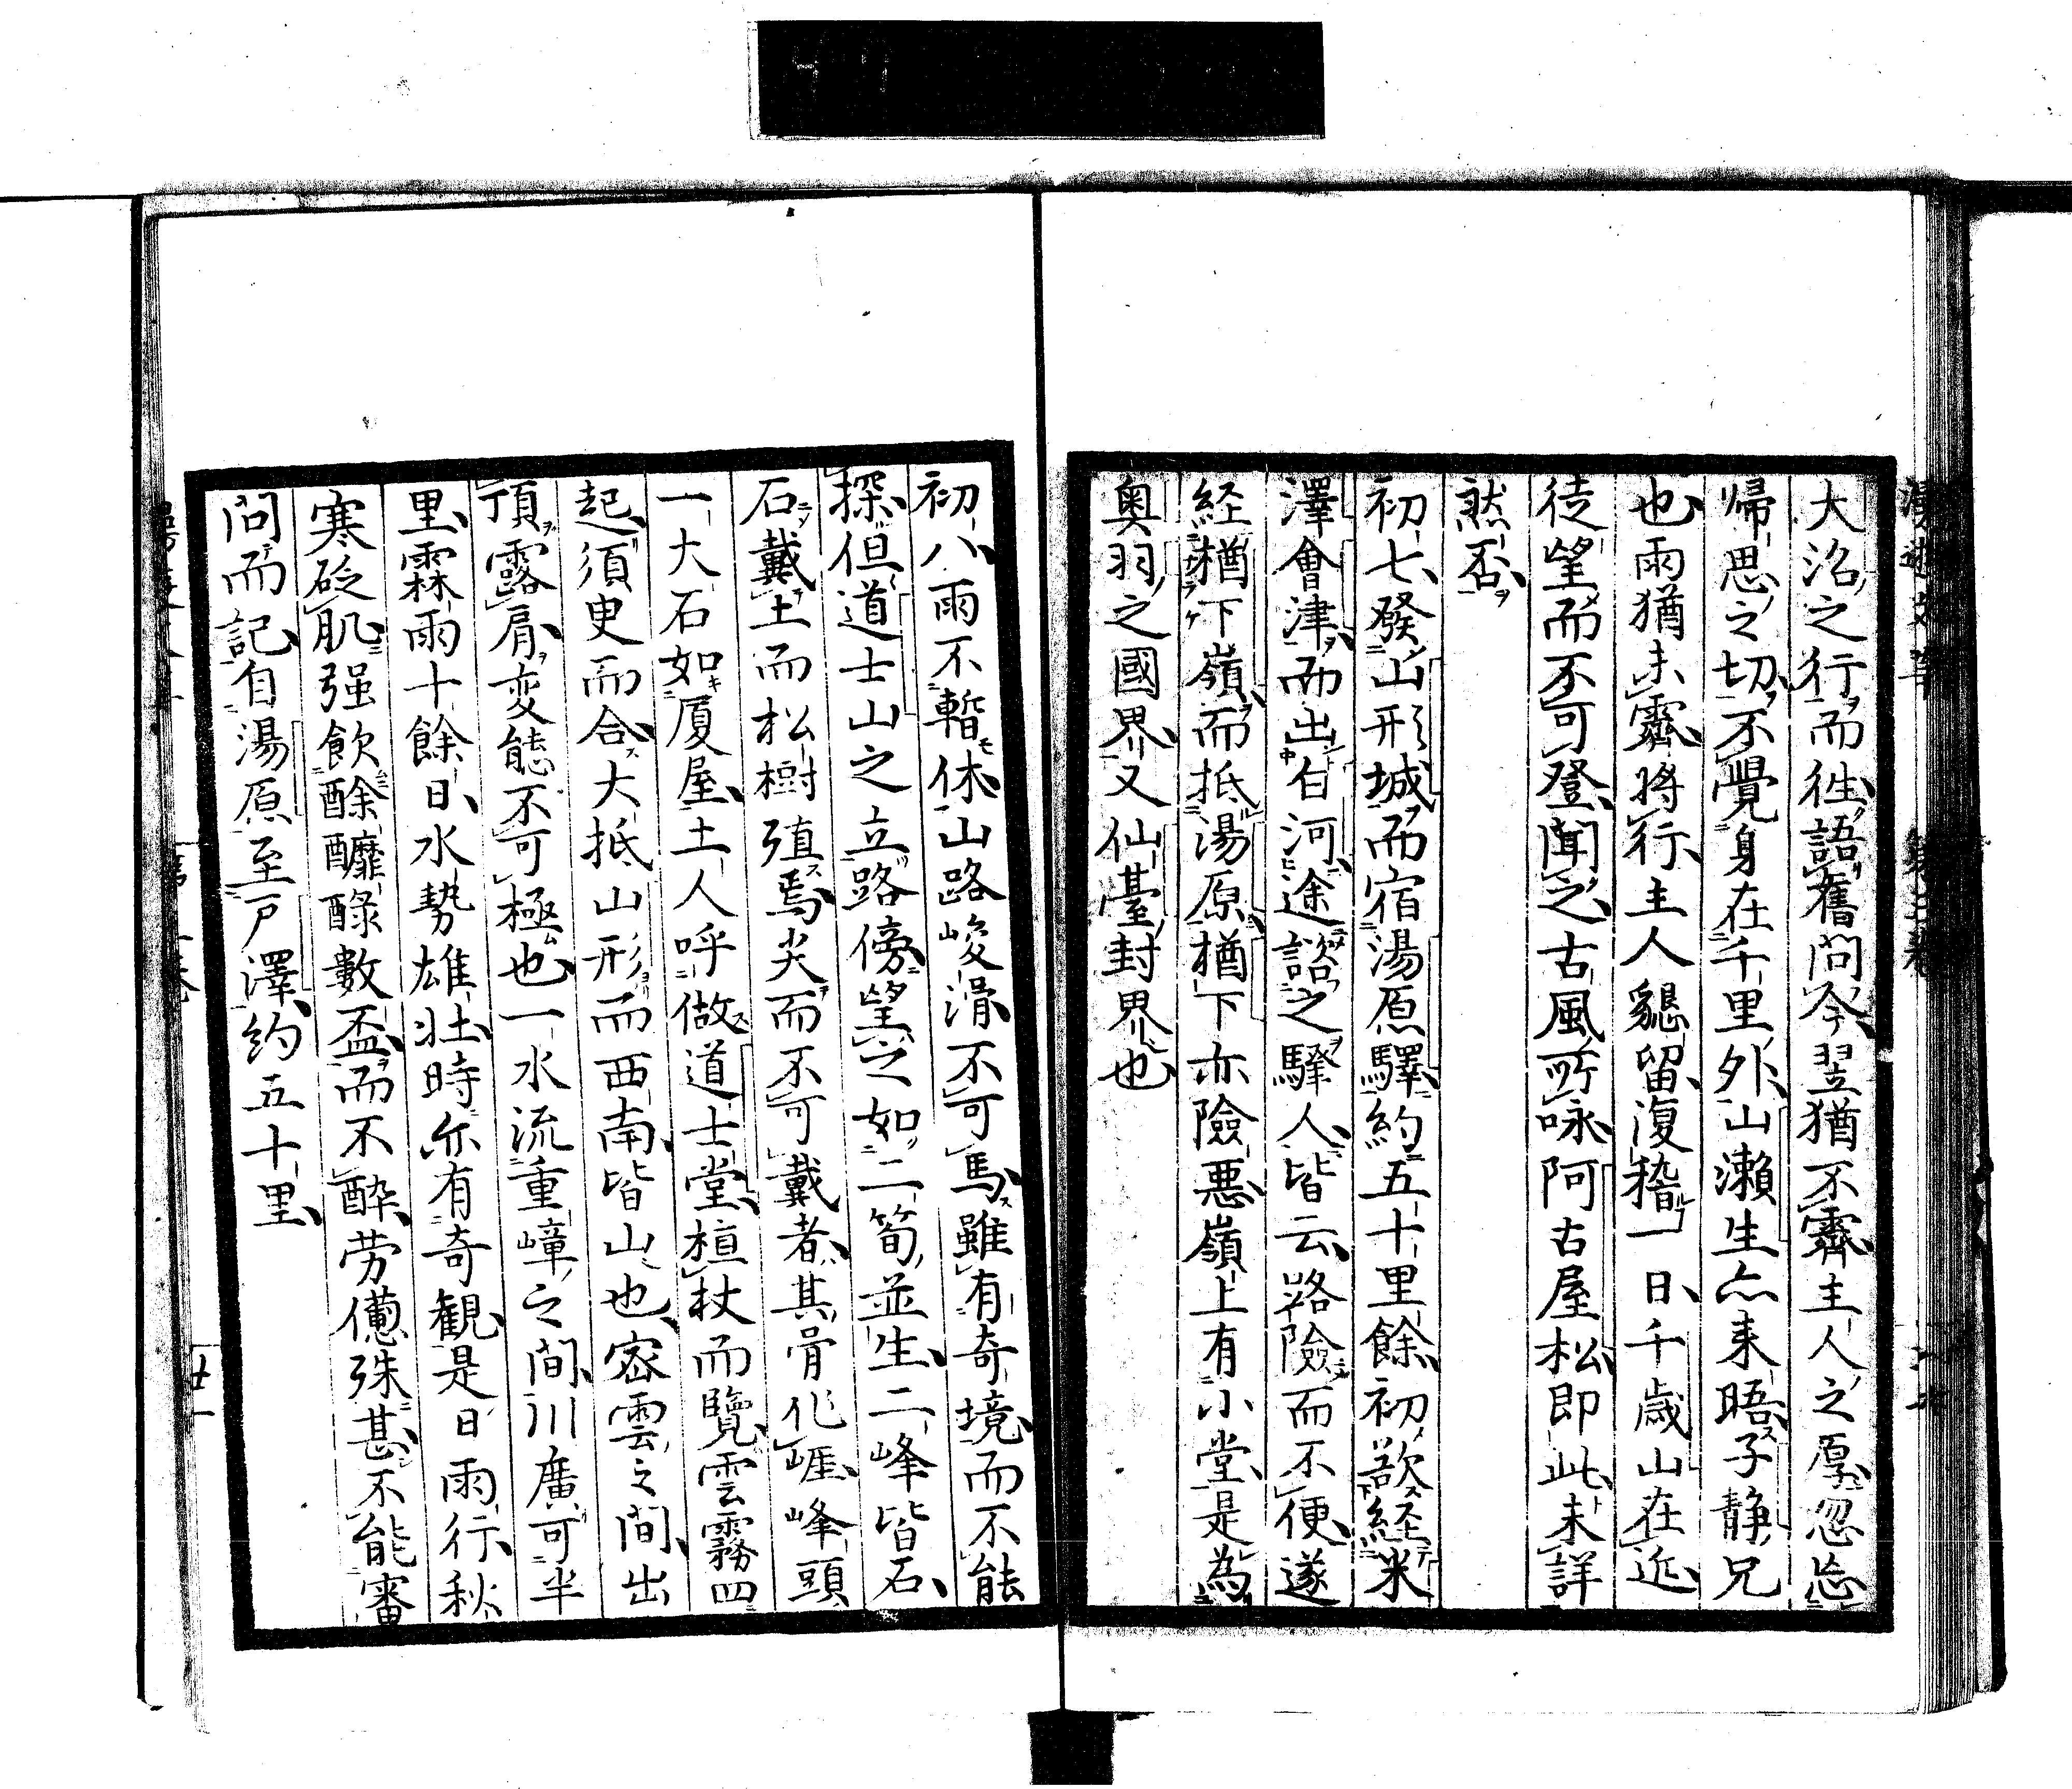 大沼之行而徃語舊問今翌猶不霽主人之厚忽忘
帰思之切不覺身在千里外山瀨生亦来晤子静兄
也雨猶未霽將行主人懇留復稽一日千歳山在近
徒望而不可登聞之古風所咏阿古屋松即此未詳
然否
初七發山形城而宿湯原驛約五十里餘初欲経米
澤會津而出白河途諮之驛人皆云路險而不便遂
経楢下嶺而抵湯原楢下亦險悪嶺上有小堂是為
奥羽之國界又仙臺封界也
初八雨不暫休山路峻滑不可馬雖有奇境而不能
探但道士山之立路傍望之如二筍並生二峰皆石
石戴土而松樹殖焉尖而不可戴者其骨化崕峰頭
一大石如厦屋土人呼做道士堂植杖而覽雲霧四
起須叟而合大抵山形而西南皆山也密雲之間出
頂露肩変態不可極也一水流重嶂之間川廣可半
里霖雨十餘日水勢雄壮時亦有奇観是日雨行秋
寒砭肌强飲酴醿醁數盃而不酔労憊殊甚不能審
問而記自湯原至戸澤約五十里